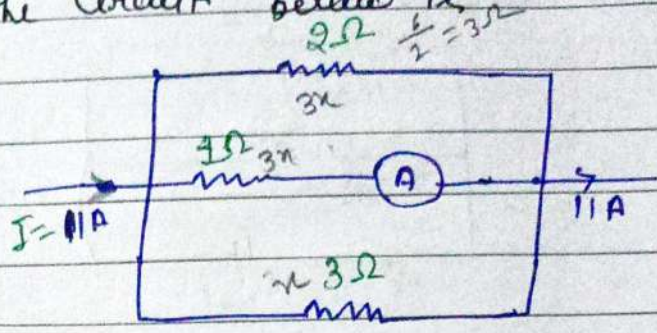 the circuit below is
2Ω 6/2 = 3Ω
3x
1Ω 3x
A
I = 11A
11A
x 3Ω